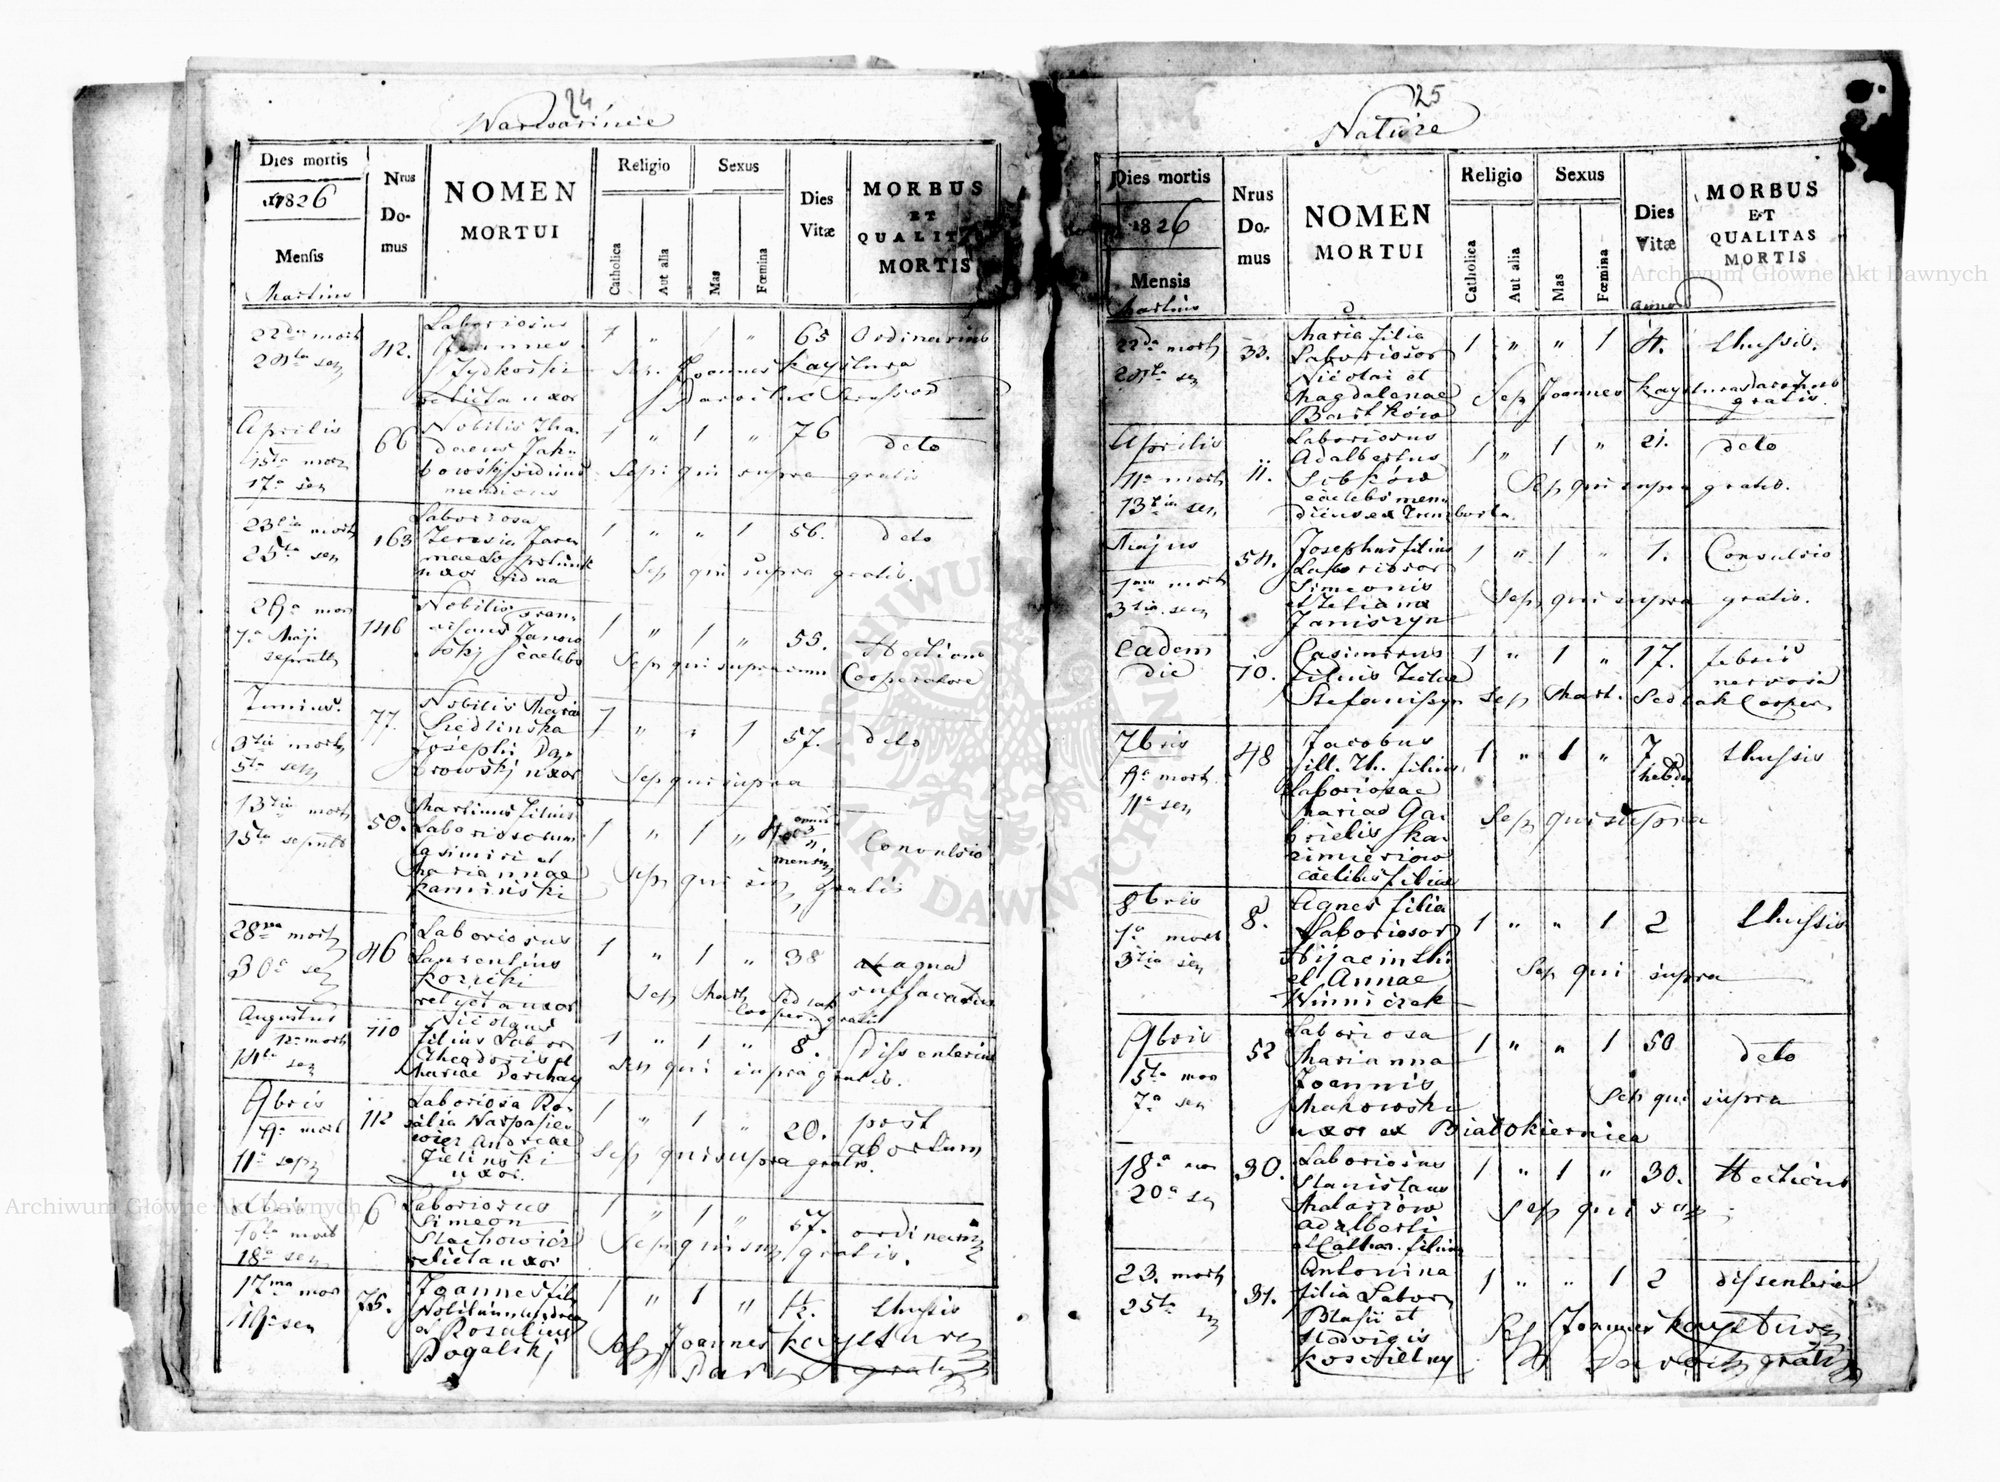 24
Dies mortis
1826
Mensis
Martius
Nrus
Do-
mus
NOMEN
MORTUI
Religio
Catholica
Aut alia
Sexus
Mas
Fœmina
Dies
Vitæ
MORBUS
ET
QUALITAS
MORTIS
22da mort
24ta sep
42.
Laboriosus
Joannes
relicta uxor
1 " " 65 Ordinarius
Sep. Joannes Kaystura
Aprilis
15ta mor
17a sep
66
Nobilis Tha
daeus Jaku
bowskj viduus
mendicus
1 " 1 " 76 deto
Sepi qui supra gratis
23tia mort
25ta sep
163
Laboriosa
Teresia Jare
uxor vidua
1 " " 1 56. deto
Sep qui supra gratis.
29a mor
1a Maji
sepult
146
Nobilis Fran
ciscus Janow
skj caelebs
1 " 1 " 55. Hecticus
Sep qui supra cum Cooperatore
Junius.
3tia mort
5ta sep
77.
Nobilis Maria
Siedlinska
Josephi Da
browskj uxor
1 " " 1 57. deto
Sep qui supra
13tia mort
15ta sepult
50.
Martinus filius
Laboriosorum
Casimiri et
Mariannae
Kaminiski
1 " 1 "
mensium
Convulsio
Sep qui sup gratis
28va mort
30a sep
46
Laboriosus
Laurentius
Kozicki
relicta uxor
1 " 1 " 38 ab agna
suffocatus
Sep Mart Sedlak
Cooper gratis
Augustus
12a mort
14ta sep
110
Nicolaus
filius Labor
Theodoris et
Mariae Derehay
1 " 1 " 8. dissenterius
Sep qui supra gratis.
9bris
9a mort
11a sep
112
Laboriosa Ro
salia
Andreae
Zielinski
uxor.
1 " 1 " 20. post
abortum
Sep qui supra gratis.
16ta mort
18a sep
6
Laboriosus
Simeon
Stachowicz
relicta uxor
1 " 1 " 57. ordinari
Sep qui sup gratis.
17ma mor
19a sep
75.
Joannes fil
Nobilium Andrea
et Rosaliae
Rogalskj
1 " 1 " 1½. thussis
Sep Joannes Kaystura
Par gratis
25
Dies mortis
1826
Mensis
Martius
Nrus
Do-
mus
NOMEN
MORTUI
Religio
Catholica
Aut alia
Sexus
Mas
Fœmina
Dies
Vitæ
annor
MORBUS
ET
QUALITAS
MORTIS
22da mort
24ta se
33.
Maria filia
Laboriosor
Nicolai et
Magdalenae
Bartków
1 " " 1 4. thussis.
Sep Joannes Kaystura Parochus
gratis.
Aprilis
11a mort
13tia sep
11.
Laboriosus
Adalbertus
Sobków
caelebs men
dicus ex Trembowla
1 " 1 " 21. deto
Sep qui supra gratis.
Majus
1ma mort
3tia sep
54.
Josephus filius
Laboriosor
Simeonis
Janiszyn
1 " 1 " 1. Convulsio
Sep qui supra gratis.
Eadem
die
70.
Casimirus
filius
Stefaniszyn
1 " 1 " 17. febris
nervosa
Sep Mart. Sedlak Cooper
7bris
9a mort
11a sep
48
Jacobus
fill. Th. filius
Laboriosae
Mariae Ga
brielis Ka
zimierow
caelibis filiae
1 " 1 " 7
hebda
thussis
Sep qui supra
8bris
1a mort
3tia sep
8.
Agnes filia
Laboriosor
Hijacinthi
et Annae
Winniczek
1 " " 1 2 thussis
Sep qui supra
9bris
5ta mor
7a sep
52
Laboriosa
Marianna
Joannis
Makowski
uxor ex Białokiernica
1 " " 1 50 deto
Sep qui supra
18a mor
20a se
30.
Laboriosus
Stanislaus
Malariow
Adalberti
et Cathar. filius
1 " 1 " 30. Hecticus
Sep qui sup
23. mort
25ta se
31.
Antonina
filia Labor
Blasii et
Hedvigis
Koscielny
1 " " 1 2 dissenteria
Sep Joannes Kaystura
Paroch gratis
Archiwum Główne Akt Dawnych
Archiwum Główne Akt Dawnych
ARCHIWUM GŁÓWNE AKT DAWNYCH